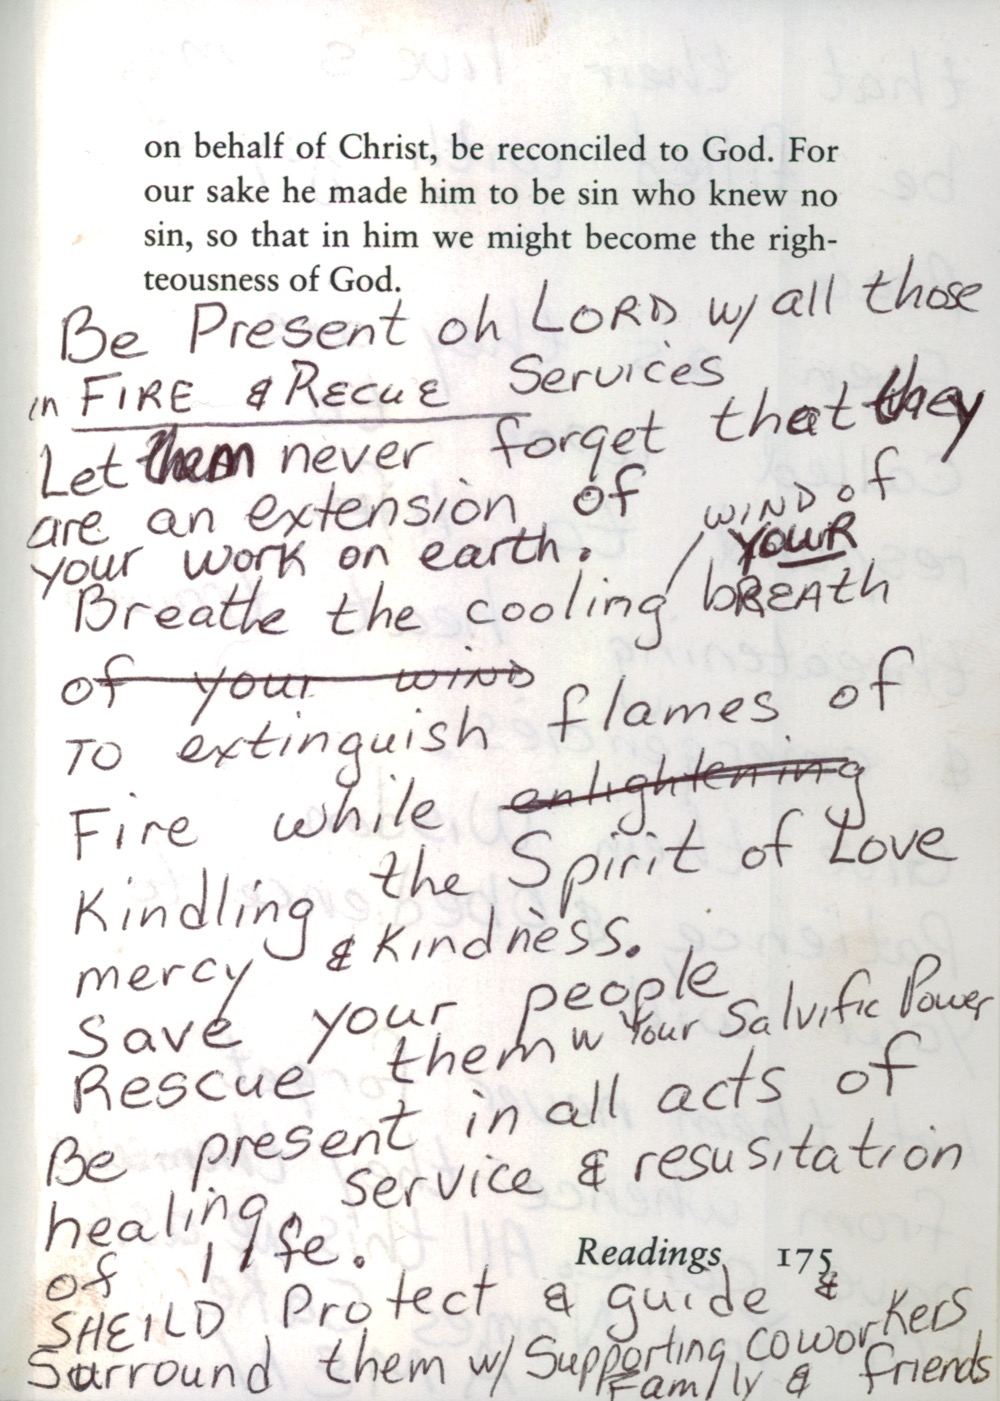 on behalf of Christ, be reconciled to God. For
our sake he made him to be sin who knew no
sin, so that in him we might become the righ-
teousness of God.
Be Present oh LORD w/ all those
in FIRE & RECUE Services
Let them never forget that they
are an extension of
your work on earth.
wIND of
YOUR
Breathe the cooling / bREATh
of your wIND
TO extinguish flames of
Fire while enlightening
Kindling the Spirit of Love
mercy & Kindness.
Save your people
Rescue them w Your Salvific Power
Be present in all acts of
healing, service & resusitation
of life.
Readings 175
SHEILD Protect & guide &
Surround them w/ Supporting coworkers
Family & friends